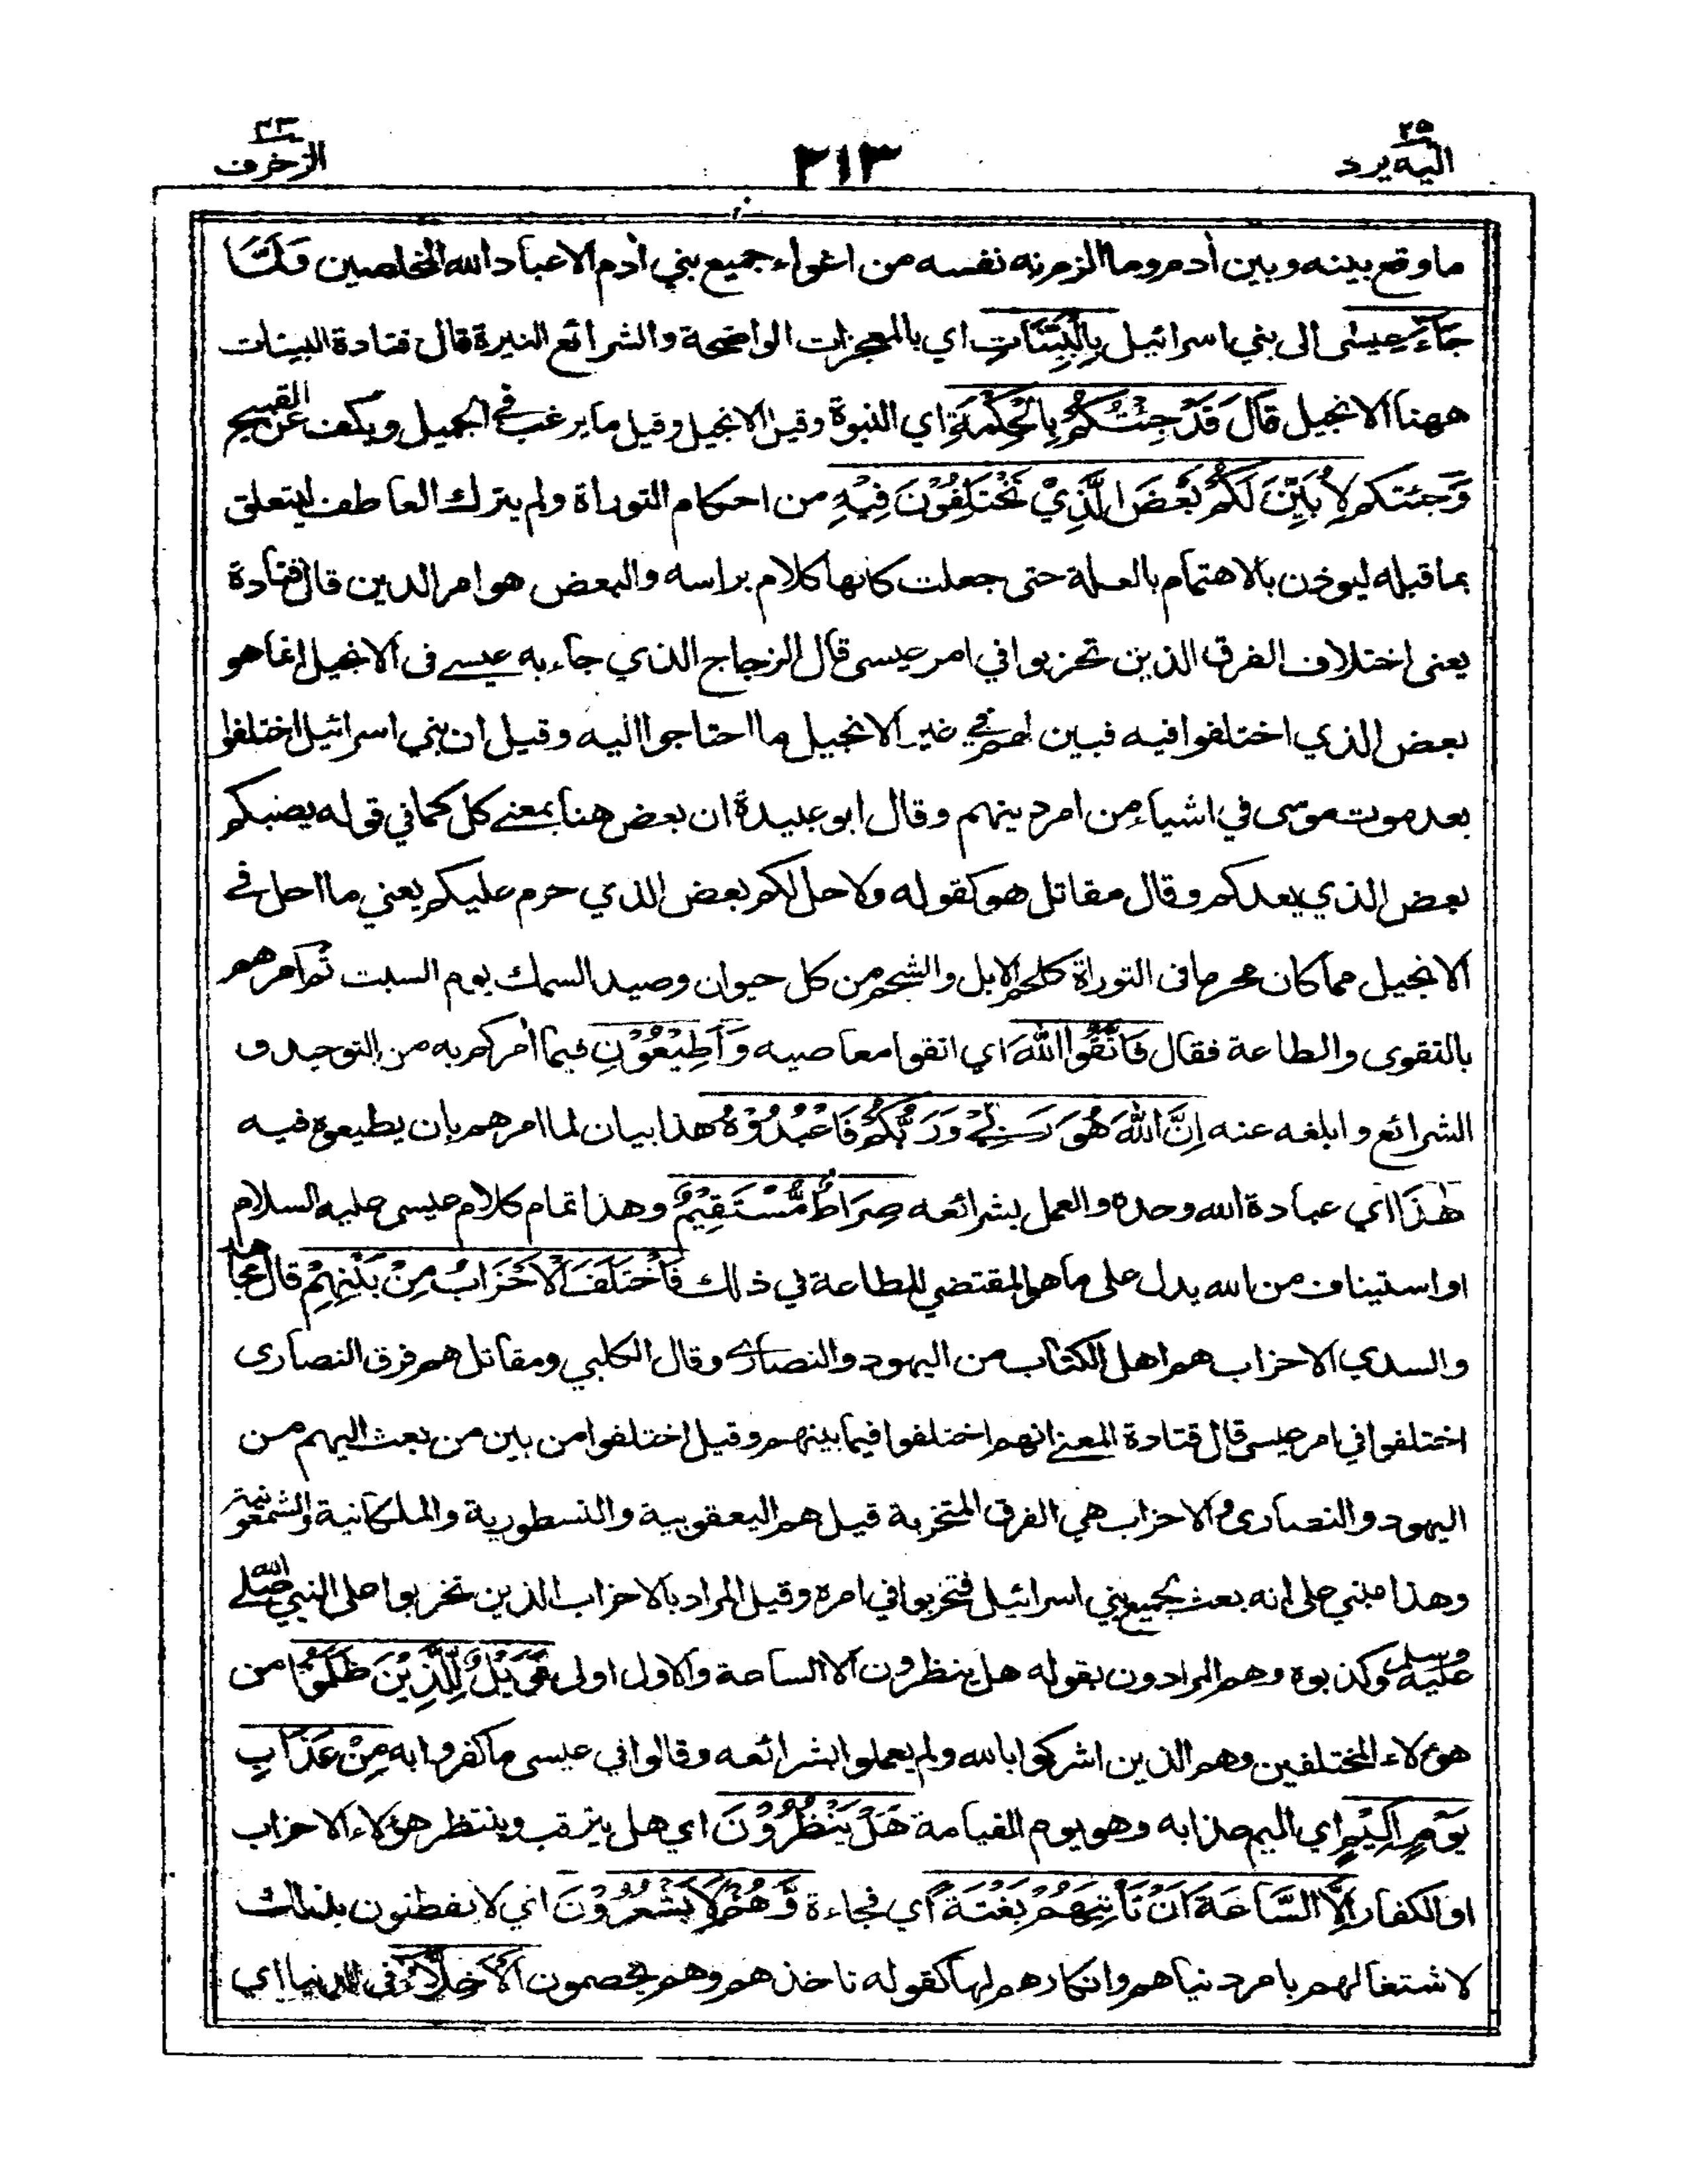 ٢٥
اليه يرد
٢١٣
٤٣
الزخرف
ما وقع بينه وبين أدم وما الزم به نفسه من اغواء جميع بني أدم الا عباد الله المخلصين وَلَمَّا
جَآءَ عِيسٰى الى بني اسرائيل بِالْبَيِّنَاتِ اي بالمعجزات الواضحة والشرائع النيرة قال قتادة البينات
ههنا الانجيل قَالَ قَدْ جِئْتُكُمْ بِالْحِكْمَةِ اي النبوة وقيل الانجيل وقيل ما يرغب في الجميل ويكف عن القبيح
وَجئتكم لِأُبَيِّنَ لَكُمْ بَعْضَ الَّذِيْ تَخْتَلِفُوْنَ فِيْهِ من احكام التوراة ولم يترك العاطف ليتعلق
بما قبله ليوذن بالاهتمام بالعلة حتى جعلت كانها كلام براسه والبعض هو امر الدين قال قتادة
يعنى اختلاف الفرق الذين تحزبوا في امر عيسى قال الزجاج الذي جاء به عيسے فى الانجيل انما هو
بعض الذي اختلفوا فيه فبين لهم في غير الانجيل ما احتاجوا اليه وقيل ان بني اسرائيل اختلفوا
بعد موت موسى في اشياء من امر دينهم وقال ابو عبيدة ان بعض هنا بمعنے كل كما في قوله يصبكم
بعض الذي يعدكم وقال مقاتل هو كقوله ولاحل لكم بعض الذي حرم عليكم يعني ما احل فے
الانجيل مما كان محرما فى التوراة كلحم الابل والشحم من كل حيوان وصيد السمك يوم السبت ثم امرهم
بالتقوى والطاعة فقال فَاتَّقُوا اللهَ اي اتقوا معاصيه وَأَطِيْعُوْنِ فيما أمركم به من التوحيد و
الشرائع وابلغه عنه اِنَّ اللهَ هُوَ رَبِّيْ وَرَبُّكُمْ فَاعْبُدُوْهُ هذا بيان لما امرهم بان يطيعوه فيه
هٰذَا اي عبادة الله وحده والعمل بشرائعه صِرَاطٌ مُّسْتَقِيْمٌ وهذا تمام كلام عيسى عليه السلام
او استيناف من الله يدل على ما هو المقتضي للطاعة في ذلك فَاخْتَلَفَ الْاَحْزَابُ مِنْ بَيْنِهِمْ قال مجاهد
والسدي الاحزاب هم اهل الكتاب من اليهود والنصارى وقال الكلبي ومقاتل هم فرق النصارى
اختلفوا في امر عيسى قال قتادة المعنے انهم اختلفوا فيما بينهم وقيل اختلفوا من بين من بعث اليهم من
اليهود والنصارى والاحزاب هي الفرق المتحزبة قيل هم اليعقوبية والنسطورية والملكانية والشمعونية
وهذا مبني على انه بعث لجميع بني اسرائيل فتحزبوا في امره وقيل المراد بالاحزاب الذين تحزبوا على النبي صلے الله
عليه وسلم وكذبوه وهم المرادون بقوله هل ينظرون الا الساعة والاول اولى فَوَيْلٌ لِّلَّذِيْنَ ظَلَمُوْا من
هؤلاء المختلفين وهم الذين اشركوا بالله ولم يعملوا بشرائعه وقالوا في عيسى ما كفروا به مِنْ عَذَابِ
يَوْمٍ اَلِيْمٍ اي اليم عذابه وهو يوم القيامة هَلْ يَنْظُرُوْنَ اي هل يترقب وينتظر هؤلاء الاحزاب
او الكفار اِلَّا السَّاعَةَ اَنْ تَأْتِيَهُمْ بَغْتَةً اي فجاءة وَّهُمْ لَا يَشْعُرُوْنَ اي لا يفطنون بذلك
لاشتغالهم بامر دنياهم وانكارهم لها كقوله تاخذهم وهم يخصمون اَلْاَخِلَّآءُ فى الدنيا اي